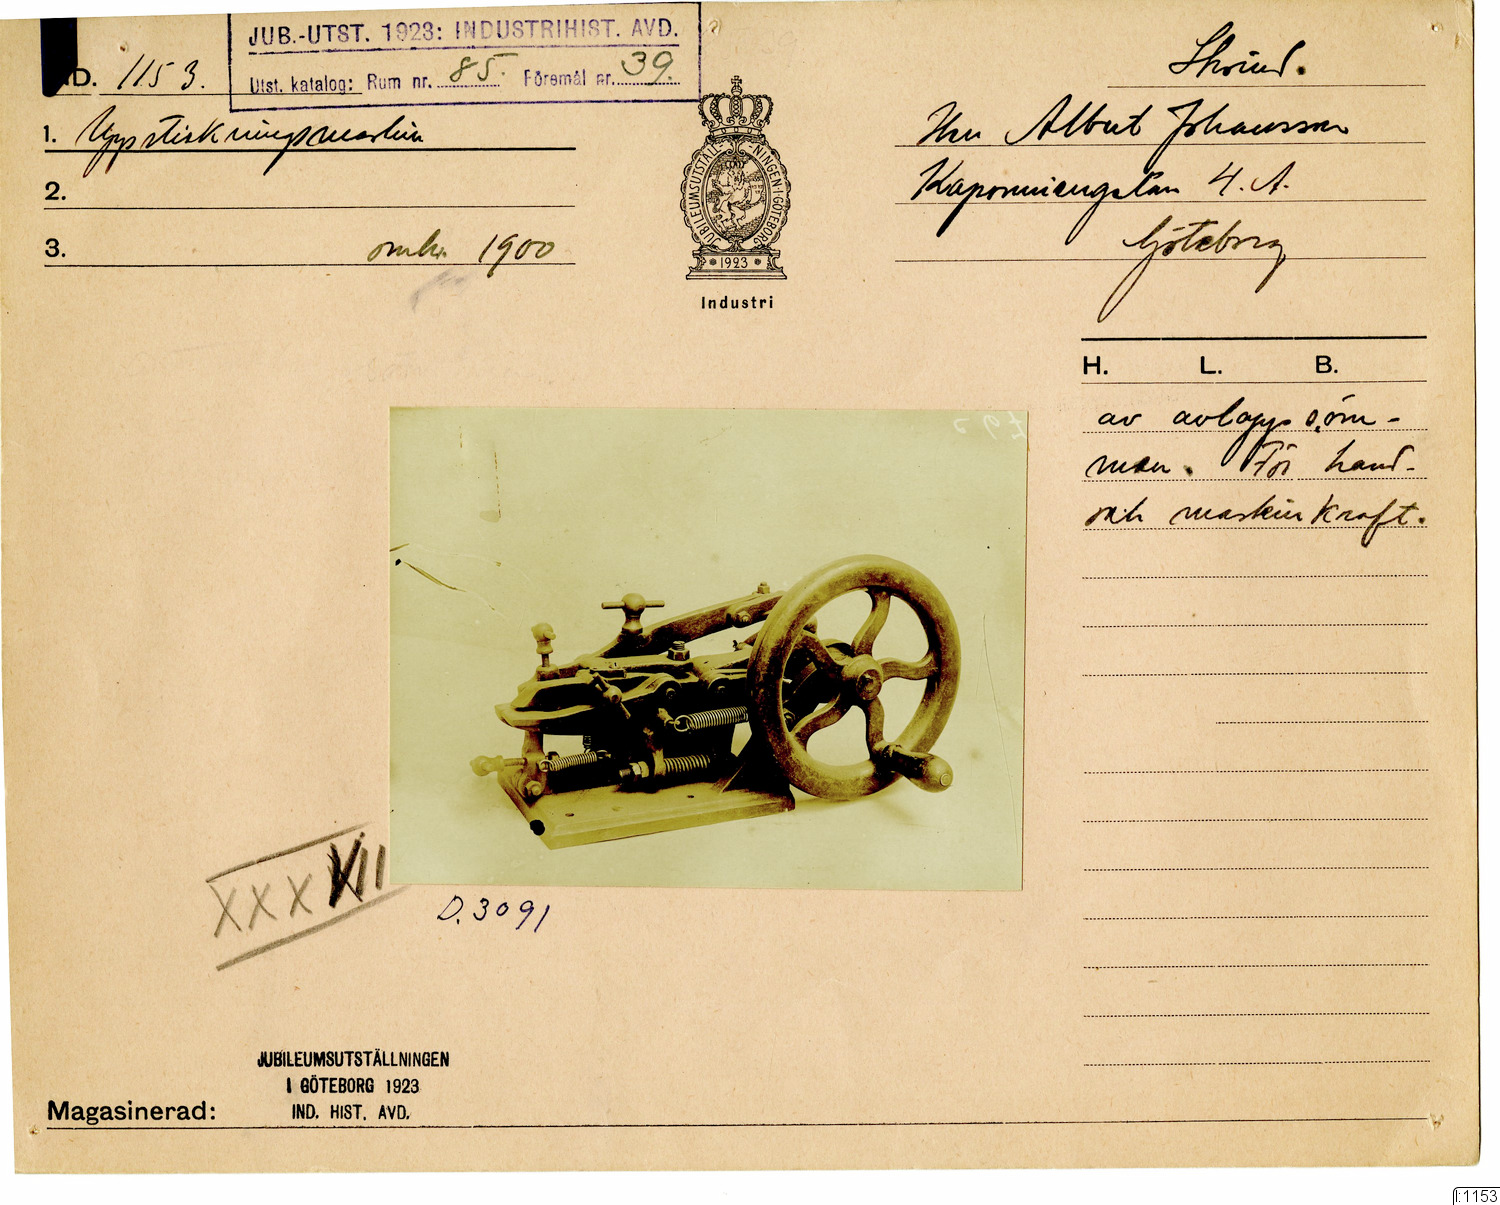 JUB.-UTST. 1923: INDUSTRIHIST. AVD.
Utst. katalog: Rum nr. 85. Föremål nr. 39.
D. 1153.
1. Uppstickningsmaskin
2.
3. omkr. 1900
JUBILEUMSUTSTÄLLNINGEN·I·GÖTEBORG
1923
Industri
Herr Albert Johansson
Kaponniergatan 4. A.
Göteborg
H. L. B.
av avlappsöm-
men. För hand-
och maskinkraft.
XXXVII
D.3091
JUBILEUMSUTSTÄLLNINGEN
I GÖTEBORG 1923
IND. HIST. AVD.
Magasinerad:
I:1153